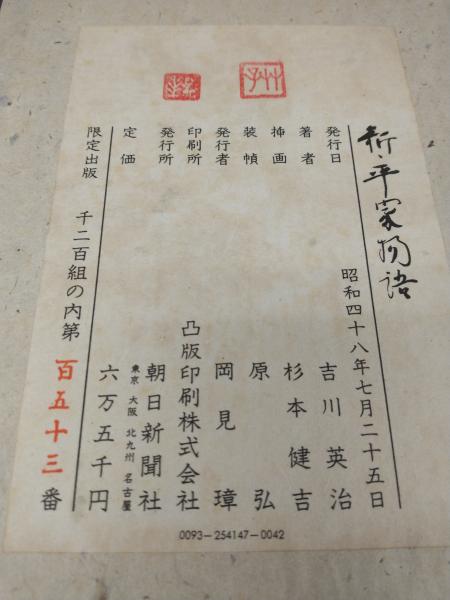 新・平家物語
発行日 昭和四十八年七月二十五日
著者 吉川英治
挿画 杉本健吉
装幀 原弘
発行者 岡見璋
印刷所 凸版印刷株式会社
発行所 朝日新聞社
東京 大阪 北九州 名古屋
定価 六万五千円
限定出版 千二百組の内第百五十三番
0093-254147-0042